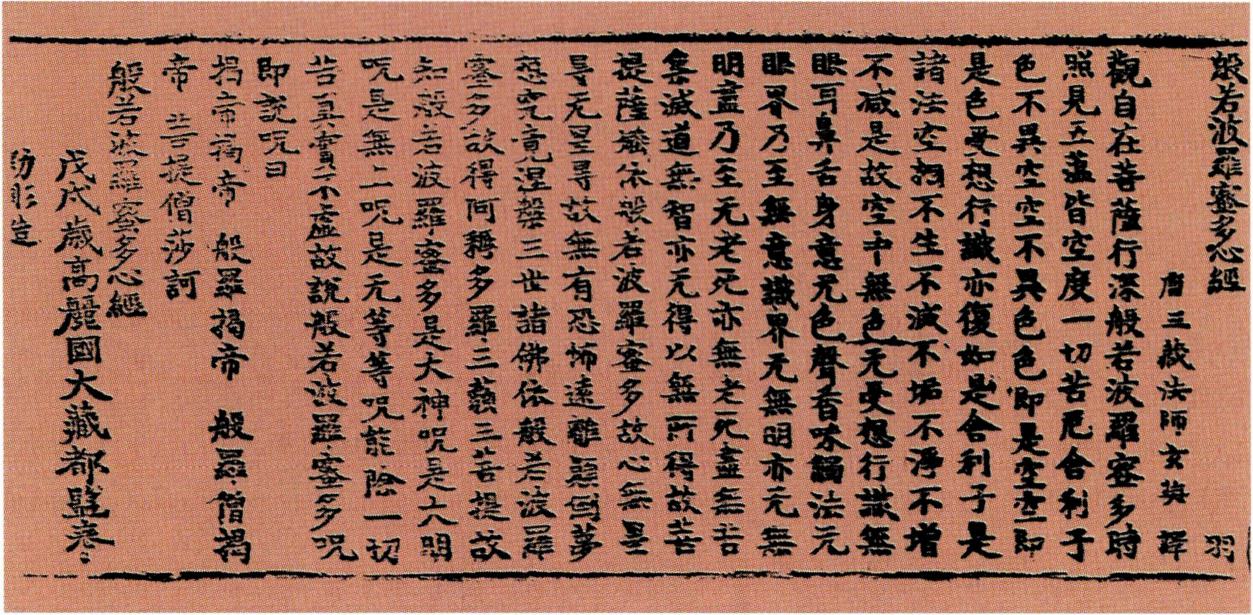 般若波羅蜜多心經 羽
唐三藏法師玄奘 譯
觀自在菩薩行深般若波羅蜜多時
照見五蘊皆空度一切苦厄舍利子
色不異空空不異色色即是空空即
是色受想行識亦復如是舍利子是
諸法空相不生不滅不垢不淨不增
不減是故空中無色无受想行識無
眼耳鼻舌身意无色聲香味觸法无
眼界乃至無意識界无無明亦无無
明盡乃至无老死亦無老死盡無苦
集滅道無智亦无得以無所得故菩
提薩埵依般若波羅蜜多故心無罣
㝵无罣㝵故無有恐怖遠離顚倒夢
想究竟涅槃三世諸佛依般若波羅
蜜多故得阿耨多羅三藐三菩提故
知般若波羅蜜多是大神呪是大明
呪是無上呪是无等等呪能除一切
苦真實不虛故說般若波羅蜜多呪
即說呪曰
揭帝揭帝 般羅揭帝 般羅僧揭
帝 菩提僧莎訶
般若波羅蜜多心經
戊戌歲高麗國大藏都監奉
勑彫造